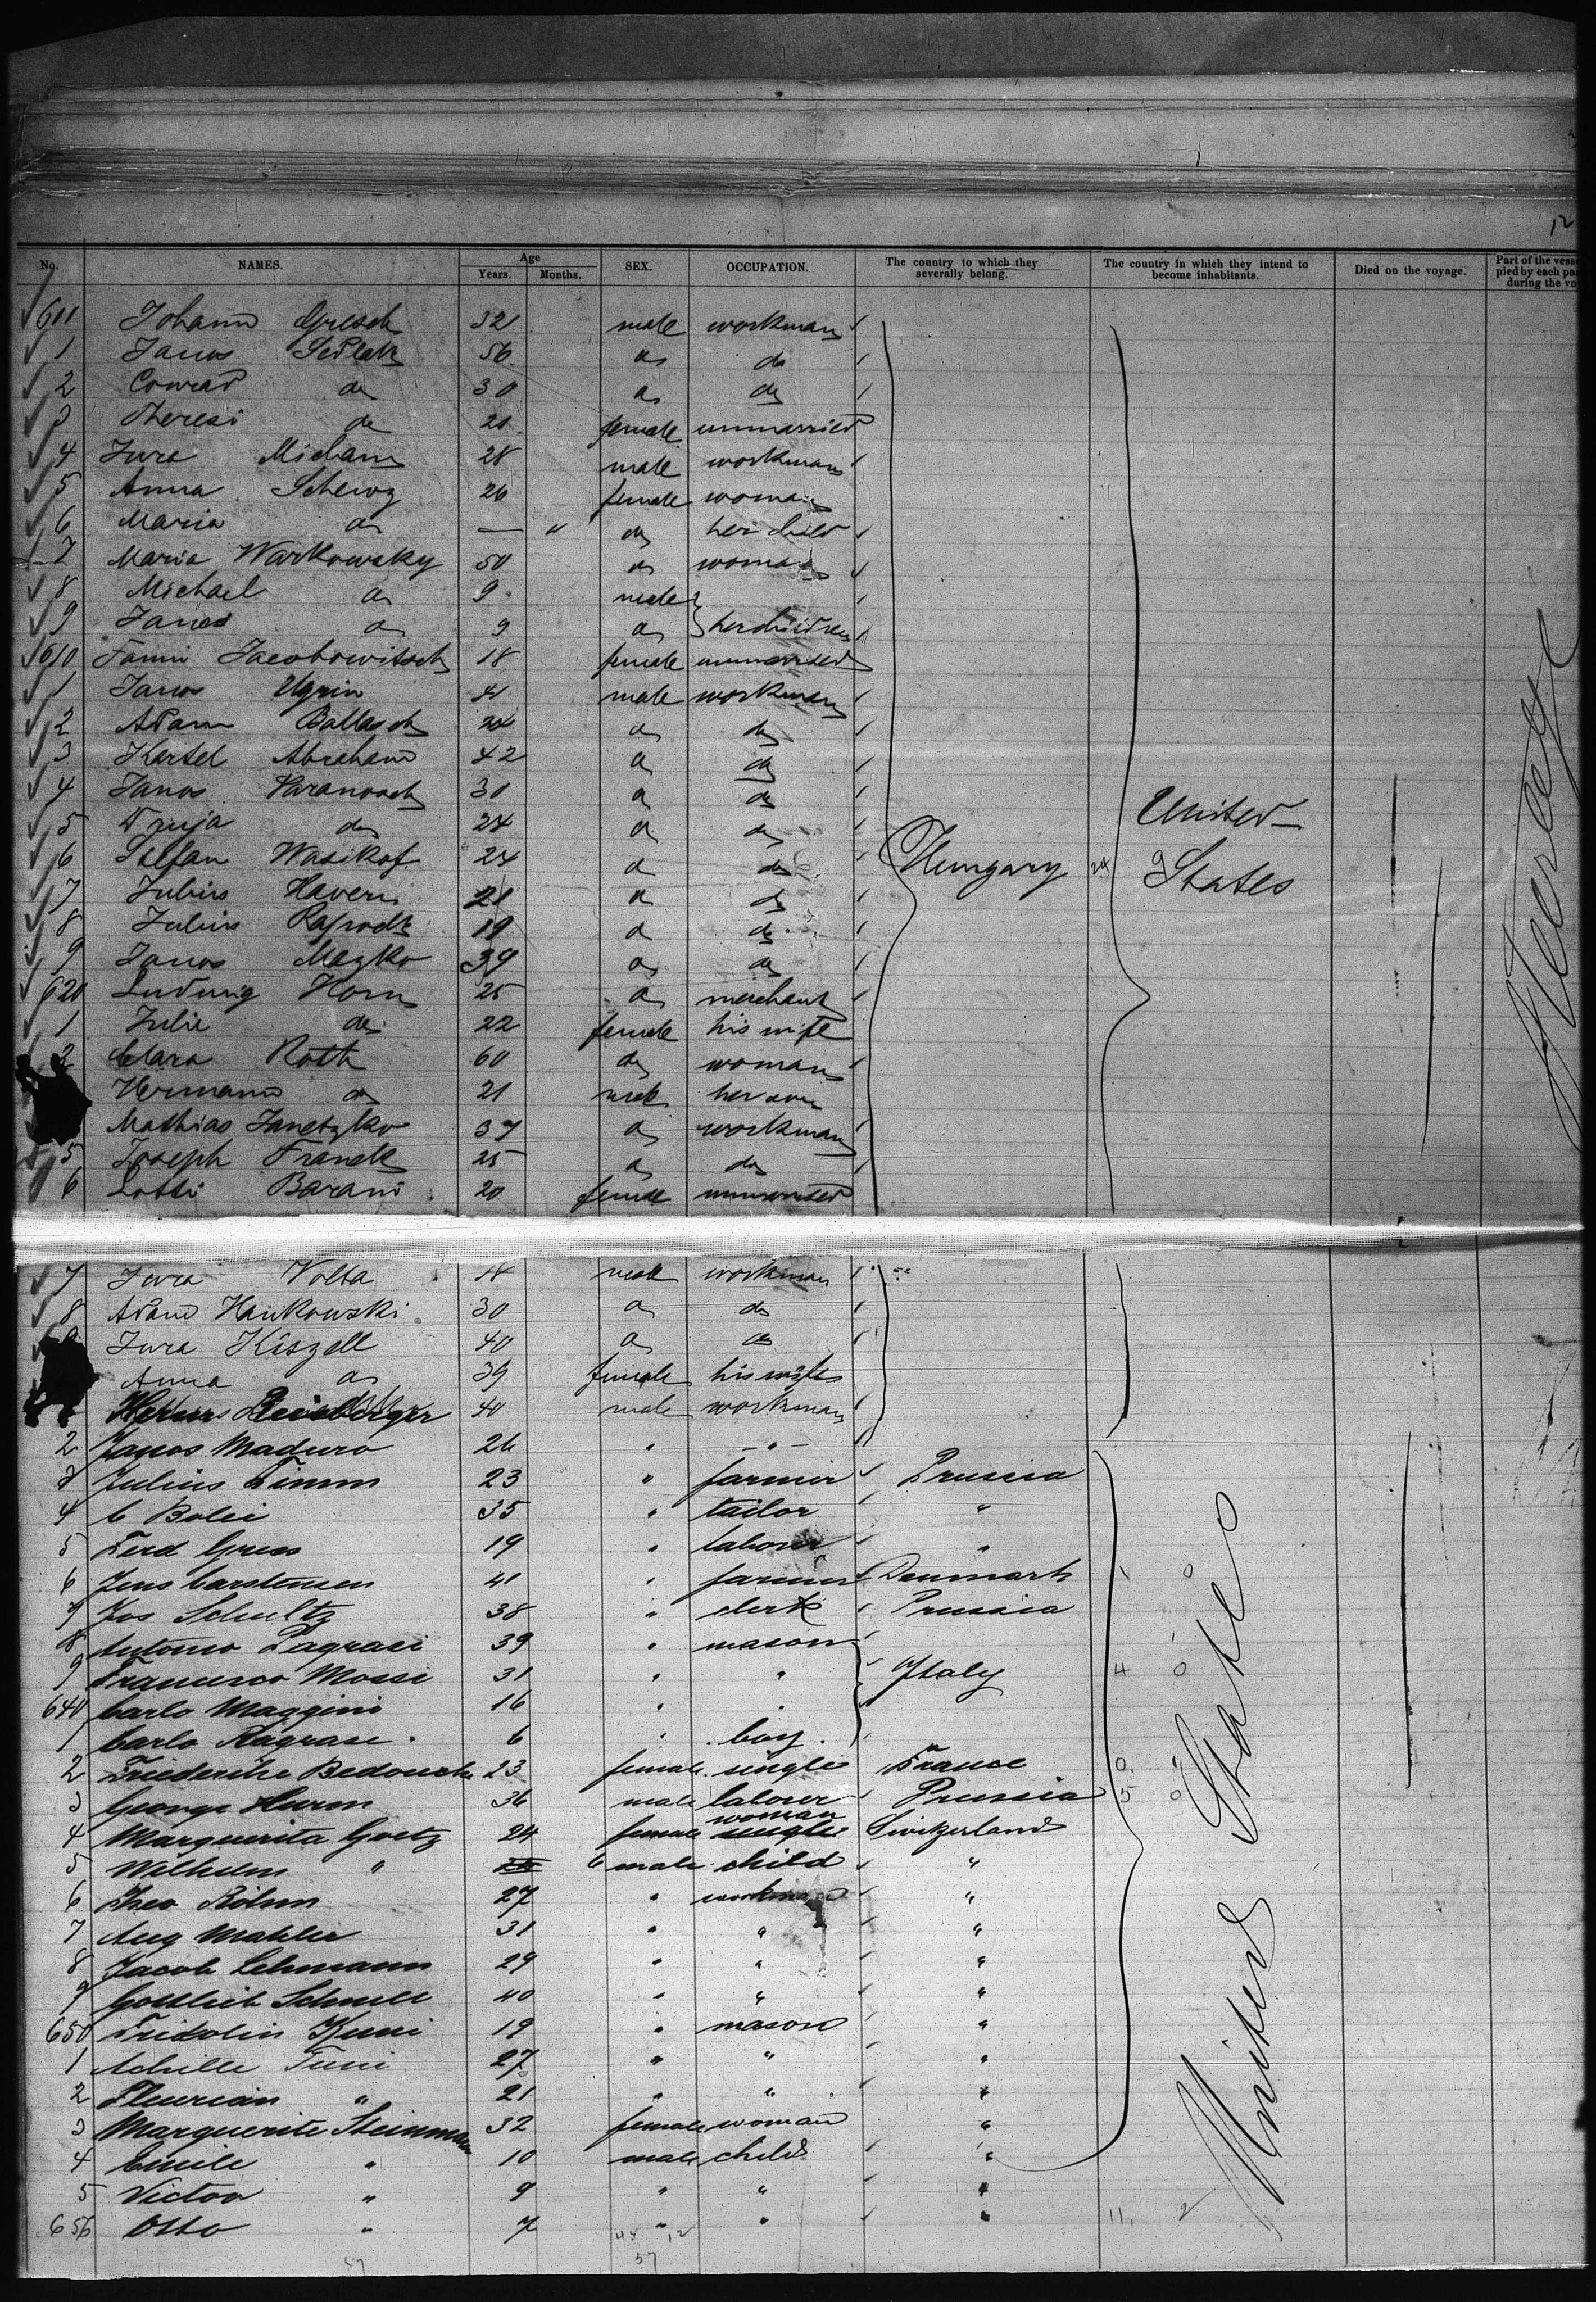 12
No. NAMES. Age Years. Months. SEX. OCCUPATION. The country to which they severally belong. The country in which they intend to become inhabitants. Died on the voyage. Part of the vesse pied by each pa during the vo
611 Johann Gresch 32 male workman
1 Janos Sedlak 56 do do
2 Conrad do 30 do do
3 Theresi do 20 female unmarried
4 Jura Micham 28 male workman
5 Anna 26 female woman
6 Maria do — " do her child
7 Maria Warkowsky 50 do woman
8 Michael do 9 male
9 Janos do 9 do her children
610 Fanni Jacobowitsch 18 female unmarried
1 Janos Ugrin 41 male workman
2 Adam Ballasch 24 do do
3 Karsel Abraham 42 do do
4 Janos Paranosch 30 do do
5 do 24 do do
6 Stefan Wasikof 24 do do Hungary 24 United States
7 Julius Haveri 21 do do
8 Julius 19 do do
9 Janos Mazko 39 do do
620 Ludwig Horn 25 do merchant
1 Julie do 22 female his wife
2 Clara Roth 60 do woman
Hermann do 21 male her son
Mathias Janetzko 37 do workman
5 Joseph Franck 25 do do
6 Lotti Barani 20 female unmarried
7 Jura Volta male workman
8 Adam Hankowski 30 do do
Jura Kiszell 40 do do
Anna do 39 female his wife
40 male workman
2 Janos Maduro 26 " - " -
3 Julius Timm 23 " farmer Prussia
4 C Bolei 35 " tailor "
5 Ferd Gress 19 " labour "
6 Jens Carstensen 41 " farmer Denmark 1 0
7 Jos Schultz 38 " clerk Prussia
8 Antonio Pagrasi 39 " mason
9 Francesco Mossi 31 " " Italy 4 0
640 Carlo Maggini 16 " "
1 Carlo Ragrasi 6 " boy
2 Friederike Bedouch 23 female single France 0
3 George Hurm 36 male labour Prussia 5 0
4 Marguerita Goetz 24 female woman Switzerland
5 Wilhelm " 6 male child "
6 Theo Rohm 27 " workman "
7 Aug Mahler 31 " " "
8 Jacob Lehmann 29 " " "
9 Gottlieb Schnell 40 " " "
650 Fridolin 19 " mason "
1 Achille 27 " " "
2 Fleurian " 21 " " "
3 Marguerite Steinmann 32 female woman "
4 Emile " 10 male child "
5 Victor " 9 " " "
656 Otto " 7 " " " 11 2
United States
57
57